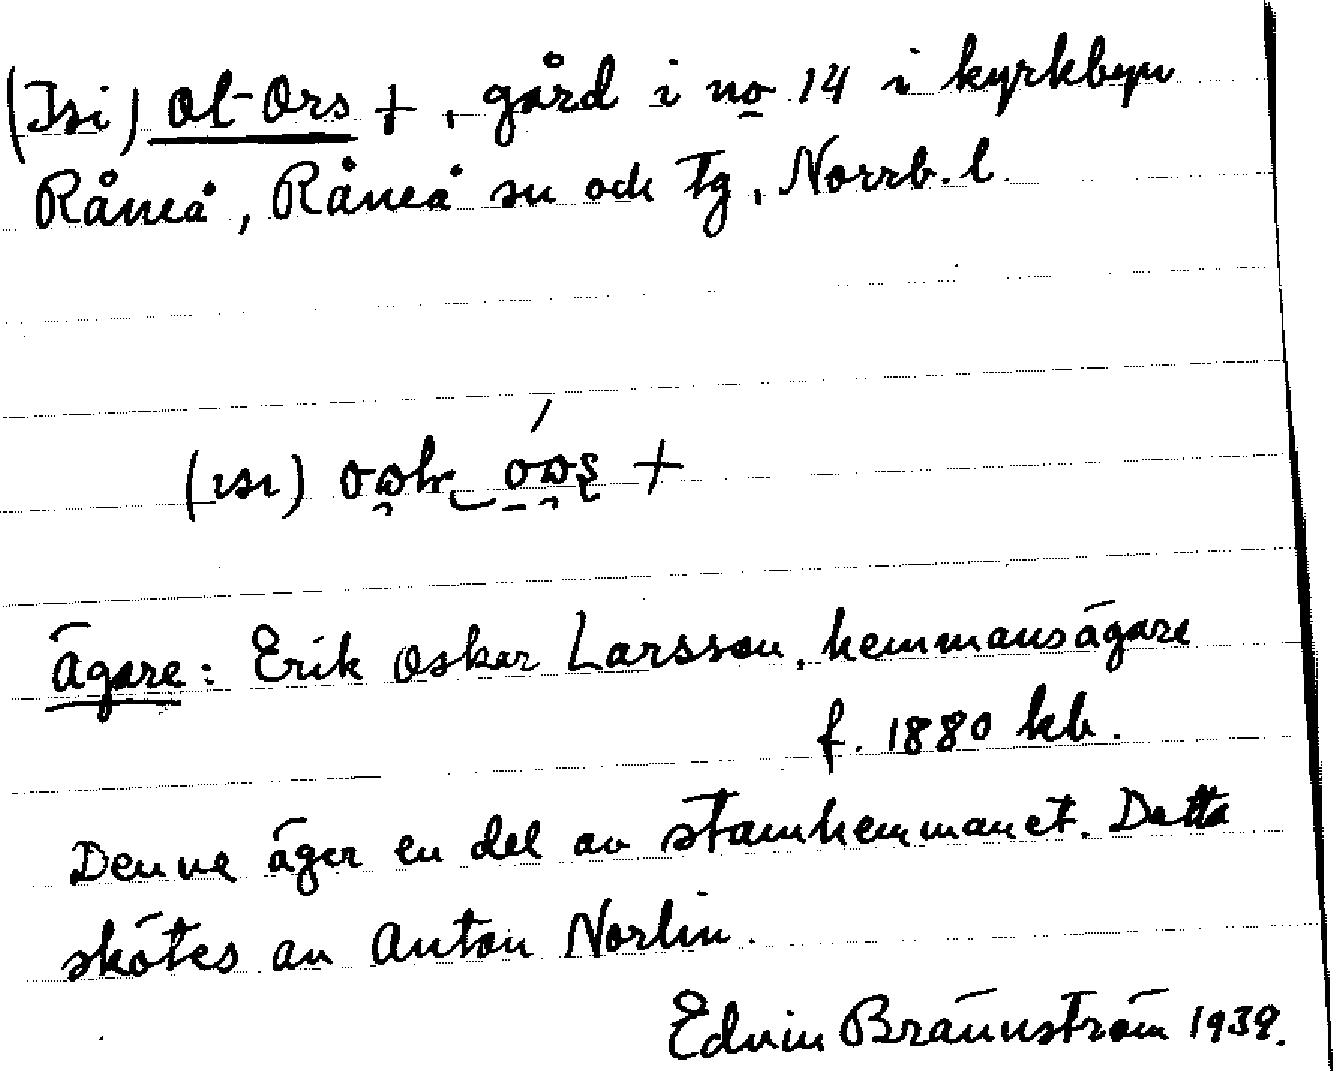 (Isi) Ol-Ors +, gård i no 14 i kyrkbyn
Råneå, Råneå sn och tg, Norrb. l.
(ısı)
Ägare: Erik Oskar Larsson, hemmansägare
f. 1880 kb.
Denne äger en del av stamhemmanet. Detta
skötes av Anton Norlin.
Edvin Brännström 1939.